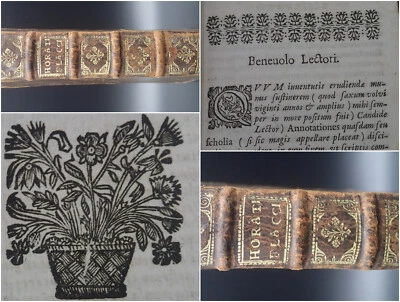 HORATI
FLACCI
Beneuolo Lectori.
QVVM iuuentutis erudiendæ mu-
nus sustinerem ( quod saxum volvi
viginti annos & amplius ) mihi sem-
per in more positum fuit ) Candide
Lector ) Annotationes quasdam seu
scholia ( si sic magis appellare placeat ) disci-
HORATI
FLACCI